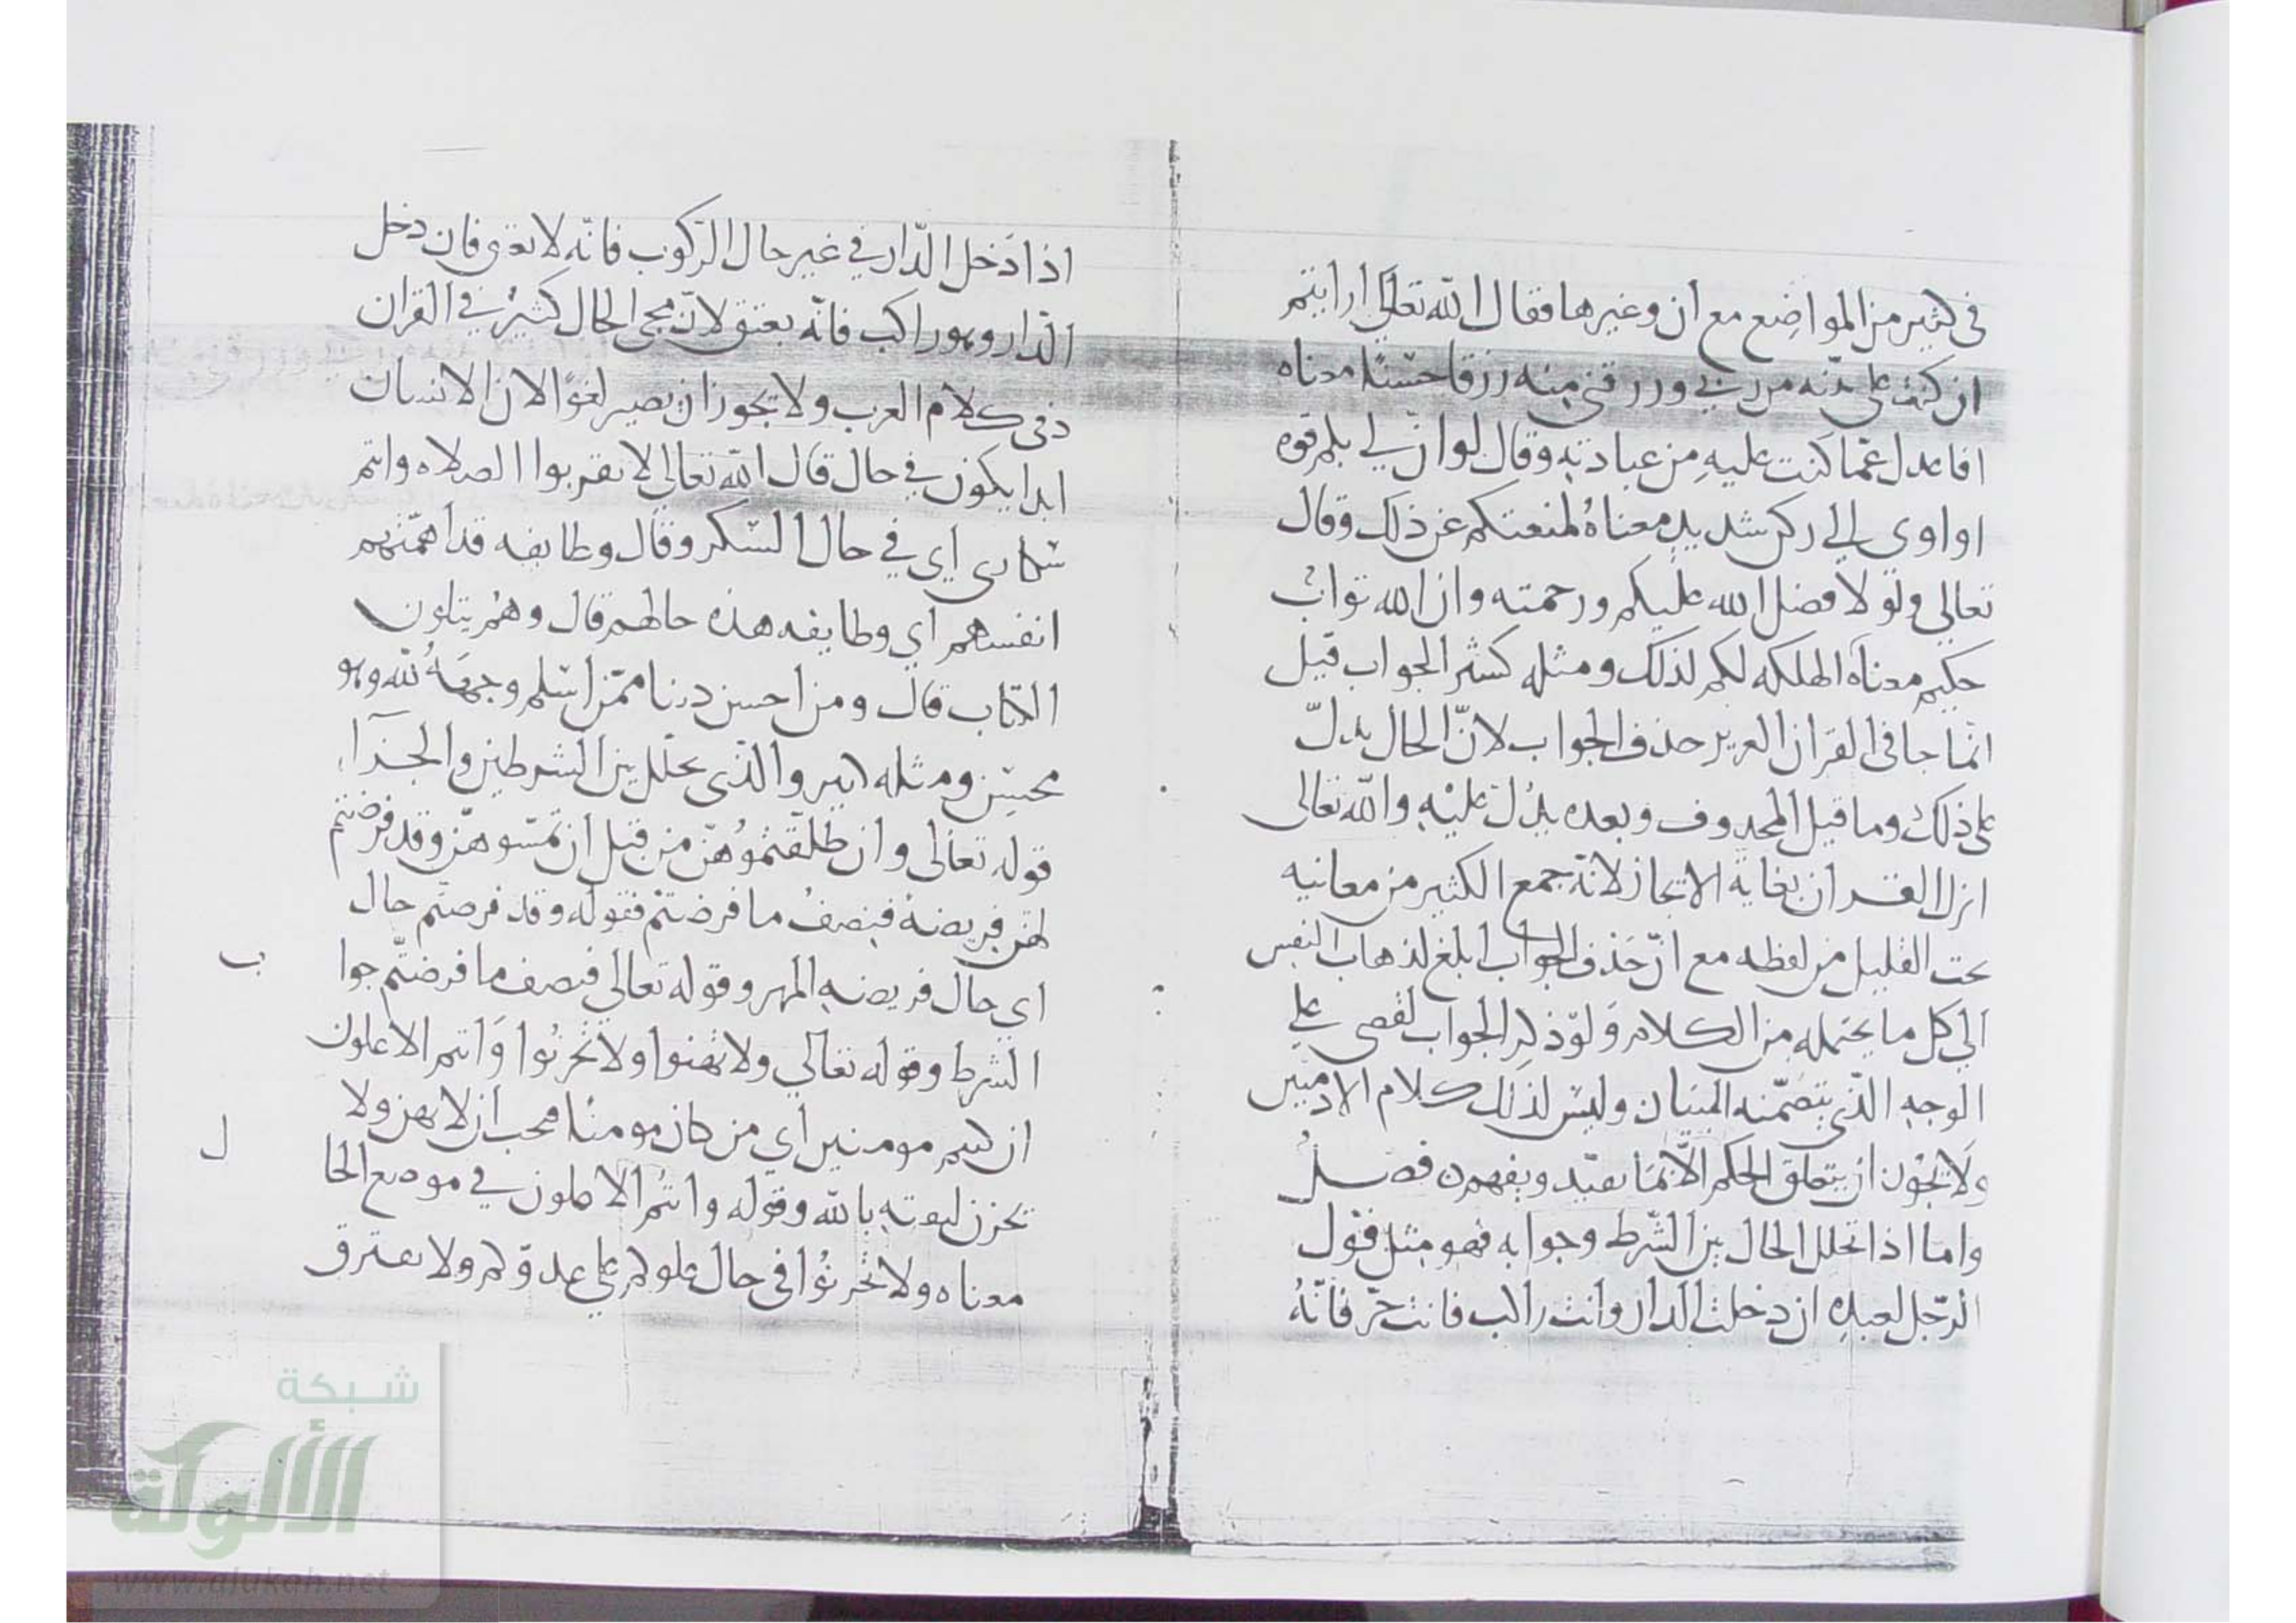 في كثير من المواضع مع ان وغيرها فقال الله تعالى ارايتم
ان كنت على بينه من ربي ورزقني منه رزقا حسنا معناه
افاعدل عما كنت عليه من عبادته وقال لو ان لي بكم قوه
او اوي الي ركن شديد معناه لمنعتكم عن ذلك وقال
تعالى ولولا فضل الله عليكم ورحمته وان الله تواب
حكيم معناه اهلككم لذلك ومثله كثير الجواب قيل
انما جا في القران العزيز حذف الجواب لانّ الحال يدلّ
على ذلك وما قبل المحذوف وبعده يدل عليه والله تعالى
انزل القران بغاية الايجاز لانه جمع الكثير من معانيه
تحت القليل من لفظه مع انّ حذف الجواب ابلغ لذهاب النفس
الي كل ما يحتمله من الكلام ولو ذكر الجواب لقصر علي
الوجه الذي يتضمنه البيان وليس لذلك كلام الادميين
ولا يجوز ان يتعلق الحكم الا بما يفيد ويفهم فصل
واما اذا تخلل الحال بين الشرط وجوابه فهو مثل قول
الرّجل لعبده ان دخلت الدار وانت راكب فانت حرّ فانّه
اذا دخل الدّار في غير حال الركوب فانّه لا يعتق فان دخل
الدّار وهو راكب فانّه يعتق لانّ مجي الحال كثير في القران
وفي كلام العرب ولا يجوز ان يصير لغوًا لان الانسان
ابدا يكون في حال قال الله تعالي لا تقربوا الصلاه وانتم
سكارى اي في حال السكر وقال وطايفه قد اهمّتهم
انفسهم اي وطايفه هذه حالهم قال وهم يتلون
الكتاب قال ومن احسن دينا ممّن اسلم وجهه لله وهو
محسن ومثله كثير والذي تخلل بين الشرطين والجزآء
قوله تعالى وان طلقتموهنّ من قبل ان تمسّوهنّ وقد فرضتم
لهن فريضة فنصف ما فرضتم فقوله وقد فرضتم حال
اي حال فريضه المهر وقوله تعالي فنصف ما فرضتم جوا
ب
الشرط وقوله تعالي ولا تهنوا ولا تحزنوا وانتم الاعلون
ان كنتم مومنين اي من كان مومنا فيجب ان لا يهن ولا
يحزن لثقته بالله وقوله وانتم الاعلون في موضع الحا
ل
معناه ولا تحزنوا في حال علوكم علي عدوّكم ولا يفترق
شبكة
الألوكة
www.alukah.net